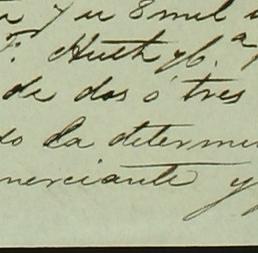 7 u 8 mil
F. Huth y C.ª
de dos ó tres
do la determi
merciante y